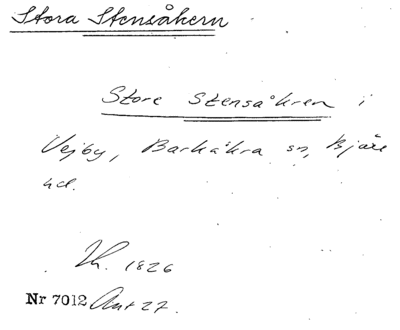 Stora Stensåkern
Store Stensåkren i
Vejby, Barkåkra sn, Bjäre
hd.
Lh. 1826
Nr 7012 Ant 27.